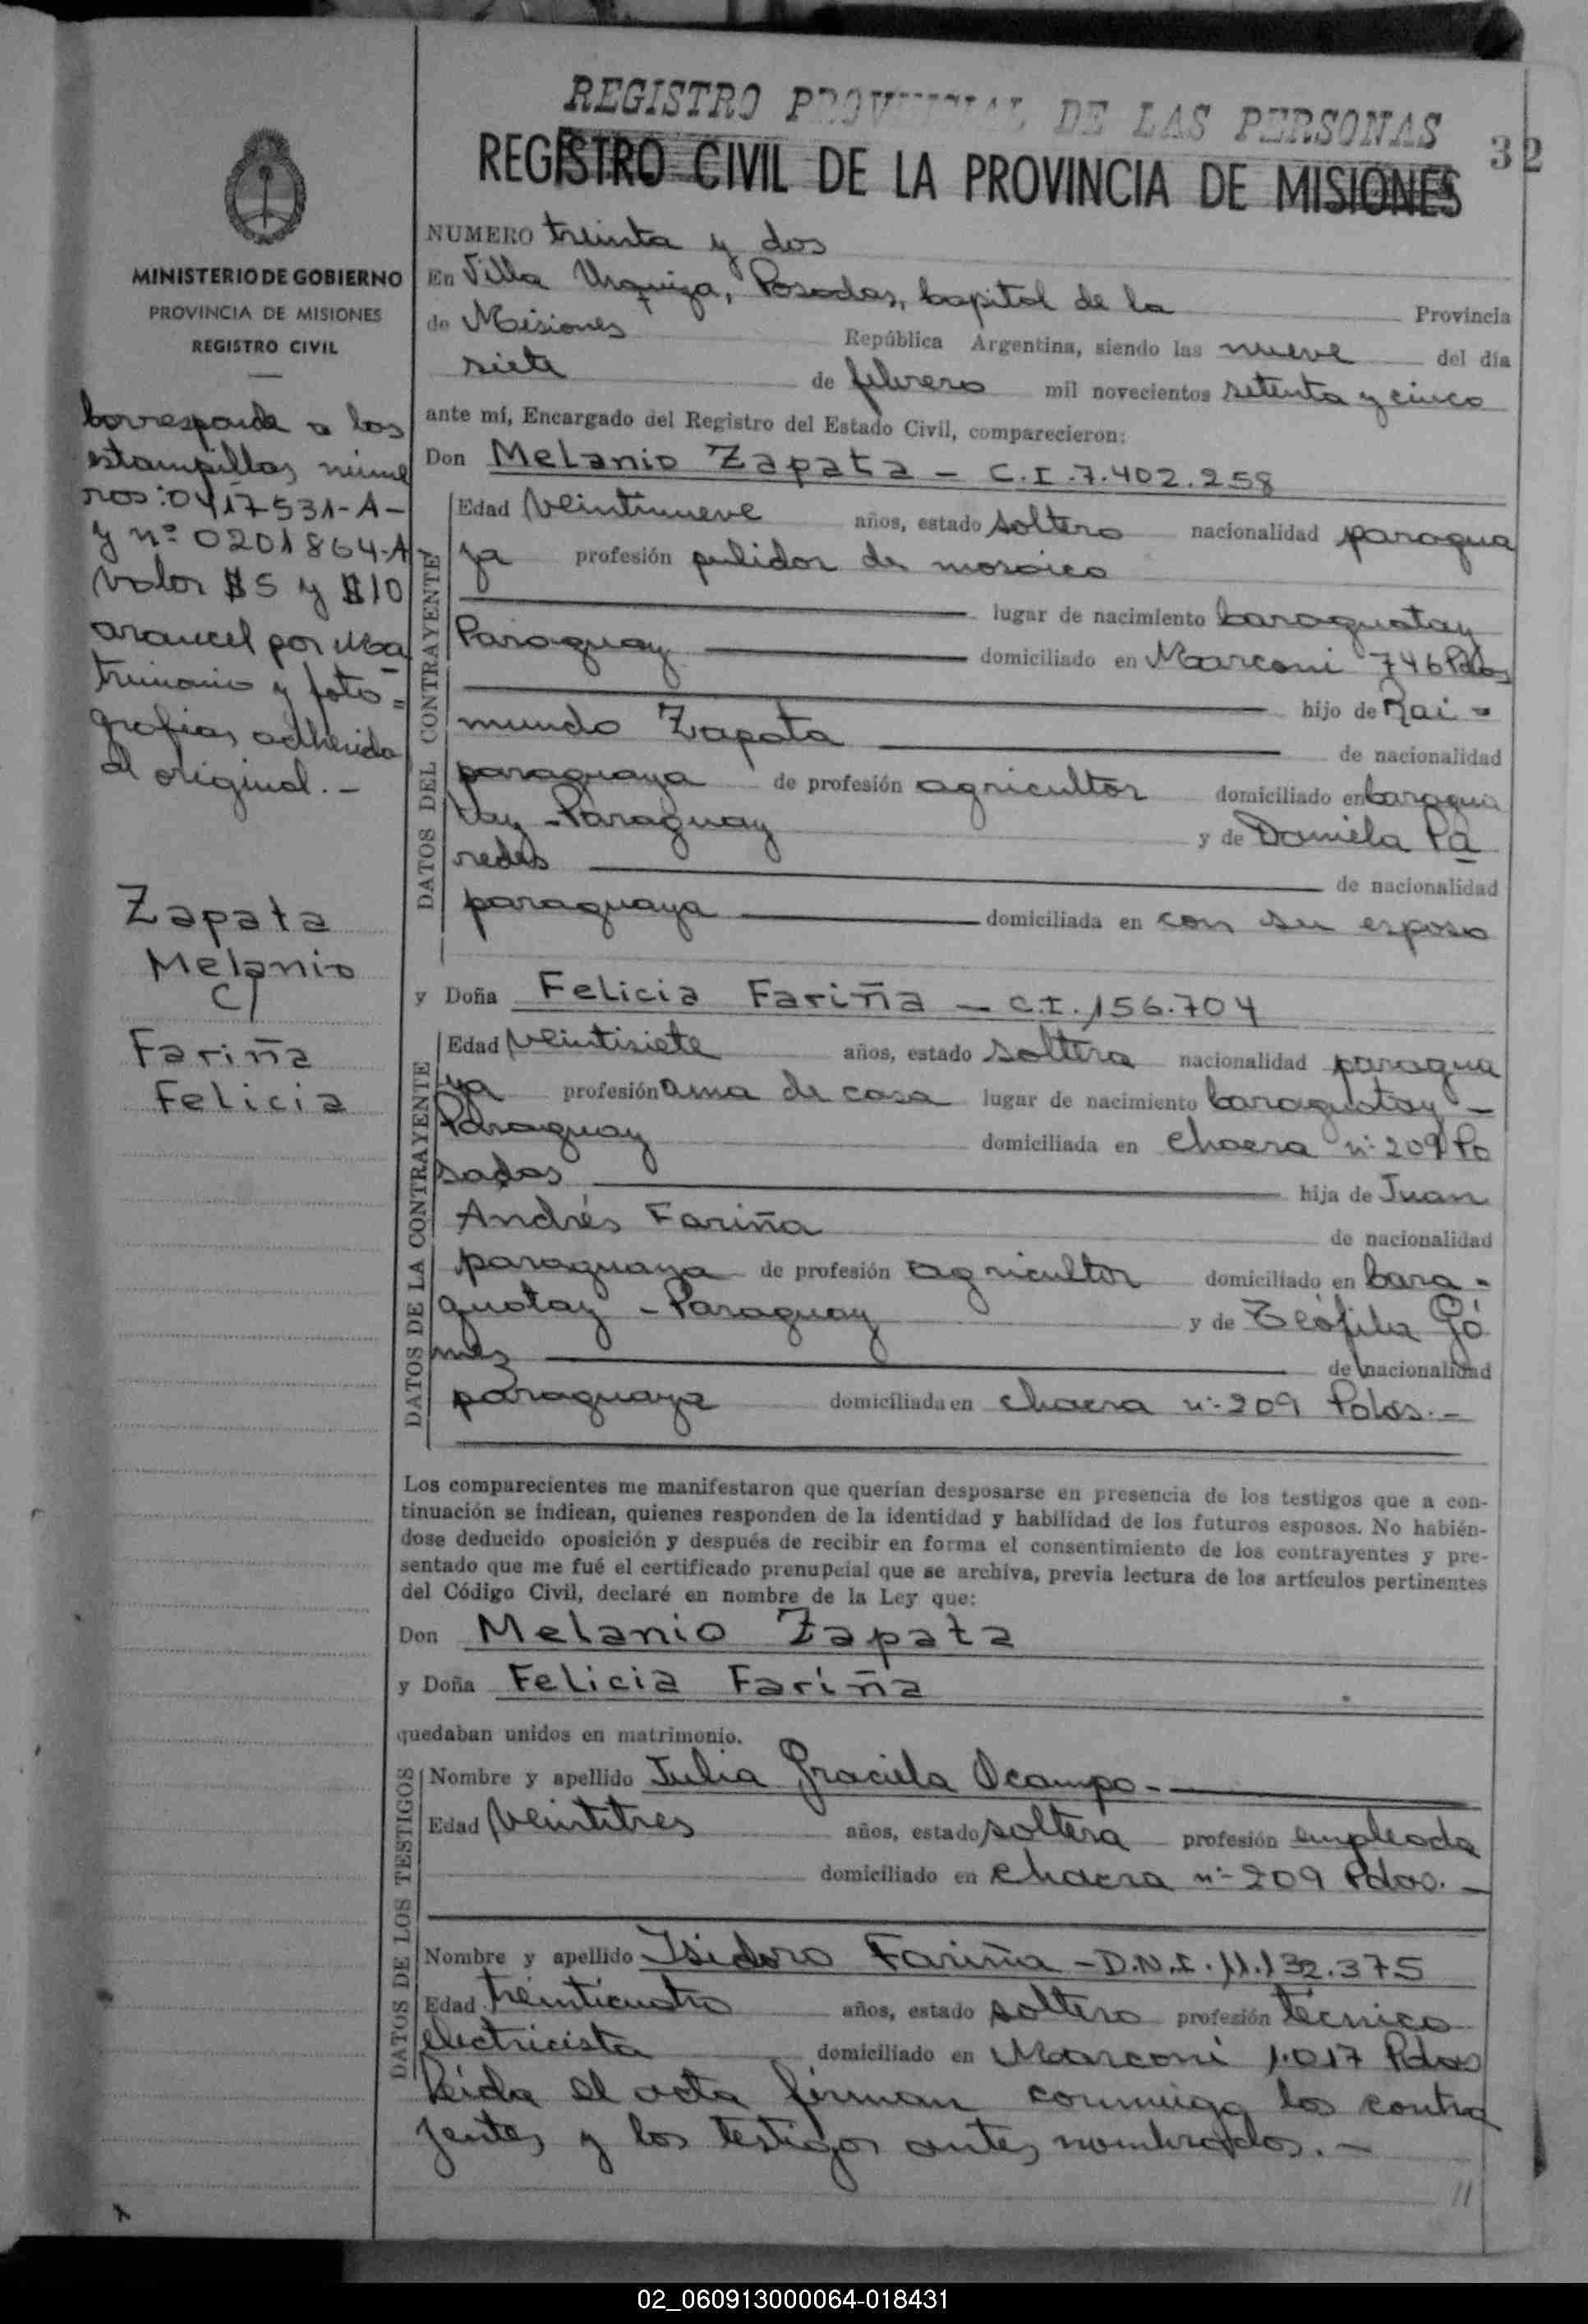 REGISTRO PROVINCIAL DE LAS PERSONAS
32
REGISTRO CIVIL DE LA PROVINCIA DE MISIONES
MINISTERIO DE GOBIERNO
PROVINCIA DE MISIONES
REGISTRO CIVIL
Corresponde a los
estampillas núme
ros: 0417531-A-
y nº 0201864-A
valor $5 y $10
arancel por Ma
trimonio y foto=
grafias adherida
al original.-
Zapata
Melanio
c/
Fariña
Felicia
NUMERO treinta y dos
En Villa Urquiza, Posadas, Capital de la Provincia
de Misiones República Argentina, siendo las nueve del día
siete de febrero mil novecientos setenta y cinco
ante mí, Encargado del Registro del Estado Civil, comparecieron:
Don Melanio Zapata - C.I.7.402.258
DATOS DEL CONTRAYENTE
Edad veintinueve años, estado soltero nacionalidad paragua
ya profesión pulidor de mosaico
lugar de nacimiento Caraguatay
Paraguay domiciliado en Marconi 746 Pdas
hijo de Rai-
mundo Zapata de nacionalidad
paraguaya de profesión agricultor domiciliado en Caragua
tay - Paraguay y de Daniela Pa
redes de nacionalidad
paraguaya domiciliada en con su esposo
y Doña Felicia Fariña - C.I. 156.704
DATOS DE LA CONTRAYENTE
Edad veintisiete años, estado soltera nacionalidad paragua
ya profesión ama de casa lugar de nacimiento Caraguatay -
Paraguay domiciliada en Chacra nº 209 Po
sadas hija de Juan
Andrés Fariña de nacionalidad
paraguaya de profesión agricultor domiciliado en Cara-
guatay - Paraguay y de Teófila Gó
mez de nacionalidad
paraguaya domiciliada en chacra nº 209 Pdas.-
Los comparecientes me manifestaron que querían desposarse en presencia de los testigos que a con-
tinuación se indican, quienes responden de la identidad y habilidad de los futuros esposos. No habién-
dose deducido oposición y después de recibir en forma el consentimiento de los contrayentes y pre-
sentado que me fué el certificado prenupcial que se archiva, previa lectura de los artículos pertinentes
del Código Civil, declaré en nombre de la Ley que:
Don Melanio Zapata
y Doña Felicia Fariña
quedaban unidos en matrimonio.
DATOS DE LOS TESTIGOS
Nombre y apellido Julia Graciela Ocampo.-
Edad veintitres años, estado soltera profesión empleada
domiciliado en Chacra nº 209 Pdas.-
Nombre y apellido Isidoro Fariña - D.N.I. 11.132.375
Edad treinticuatro años, estado soltero profesión técnico
electricista domiciliado en Marconi 1.017 Pdas
Leída el acta firman conmigo los contra
yentes y los testigos antes nombrados.-
11
02_060913000064-018431